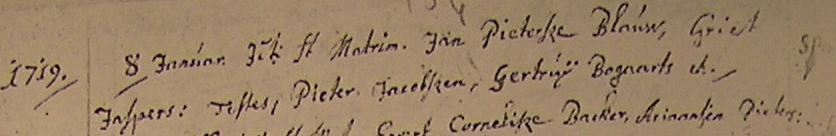 1719. 8 Januar. st Matrim. Jan Pieterse Blauw, Griet
Jaspers: testes, Pieter Jacobsen, Gertruy Bogaarts et.
Cornelise Backer, Ariaantien Pieters: